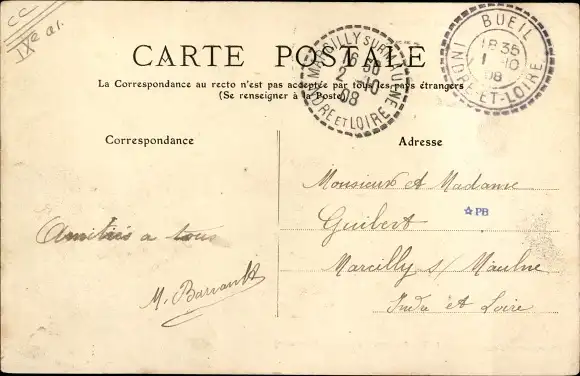 CC
IXe al.
CARTE POSTALE
La Correspondance au recto n'est pas acceptée par tous les pays étrangers
(Se renseigner à la Poste)
MARCILLY SUR MAULNE
6 30
2 -10
08
INDRE ET LOIRE
BUEIL
18 35
1 -10
08
INDRE-ET-LOIRE
Correspondance
Amitiés a tous
M. Barrault
Adresse
Monsieur et Madame
Guibert
☆PB
Marcilly s/ Maulne
Indre et Loire